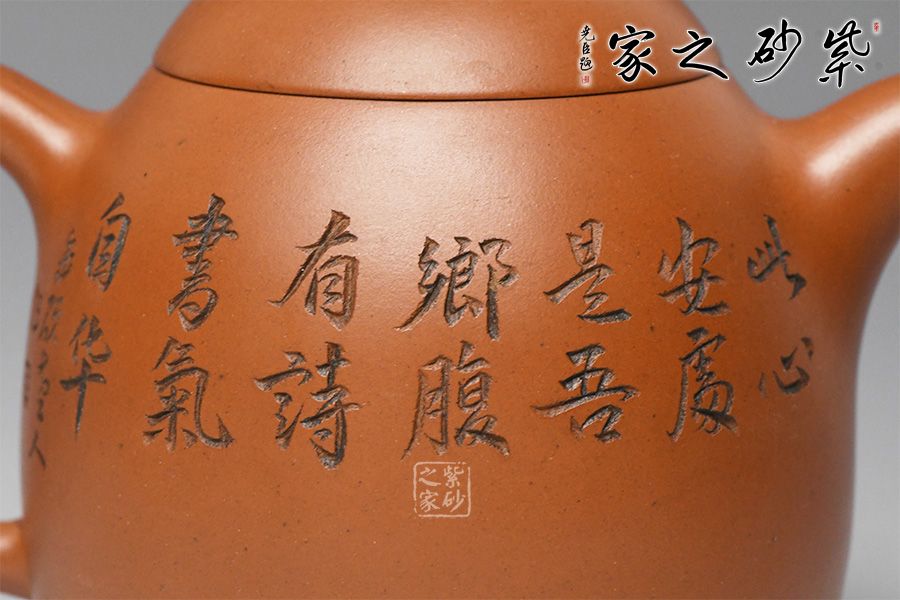 紫砂之家
尧臣题
此心
安處
是吾
鄉腹
有詩
書氣
自华
紫砂
之家